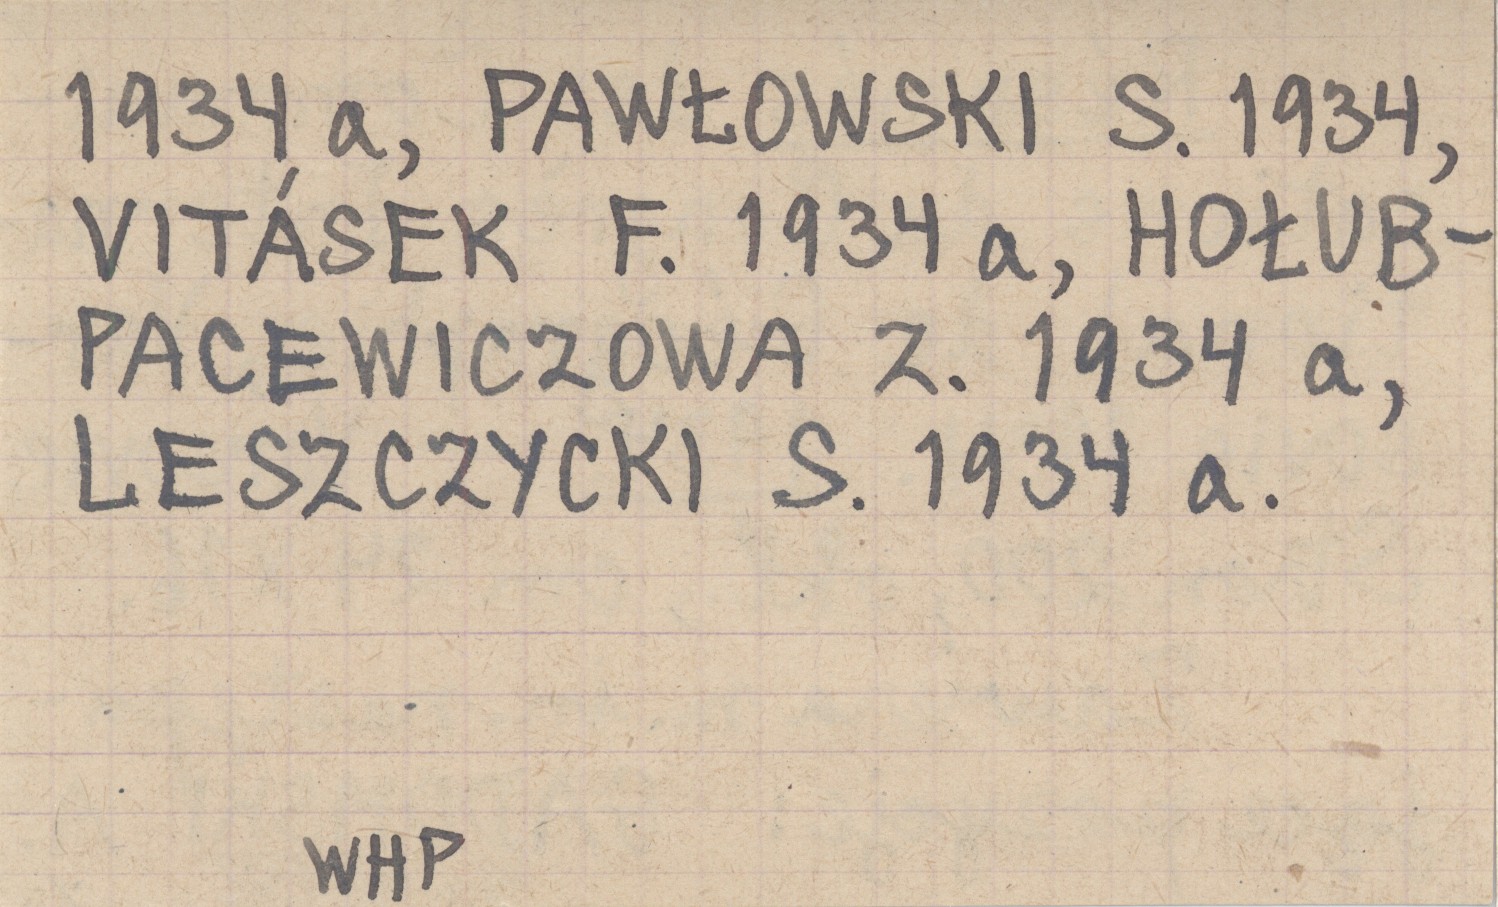 1934 a, PAWŁOWSKI S. 1934,
VITÁSEK F. 1934 a, HOŁUB-
PACEWICZOWA Z. 1934 a,
LESZCZYCKI S. 1934 a.
WHP